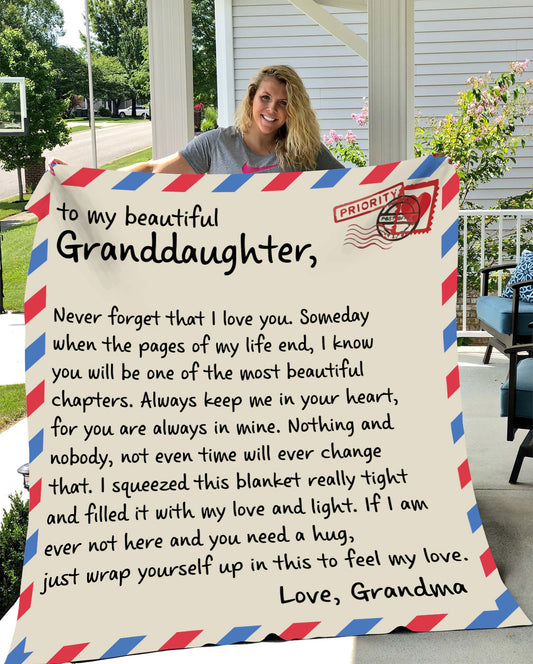 to my beautiful
Granddaughter,
PRIORITY
Never forget that I love you. Someday
when the pages of my life end, I know
you will be one of the most beautiful
chapters. Always keep me in your heart,
for you are always in mine. Nothing and
nobody, not even time will ever change
that. I squeezed this blanket really tight
and filled it with my love and light. If I am
ever not here and you need a hug,
just wrap yourself up in this to feel my love.
Love, Grandma